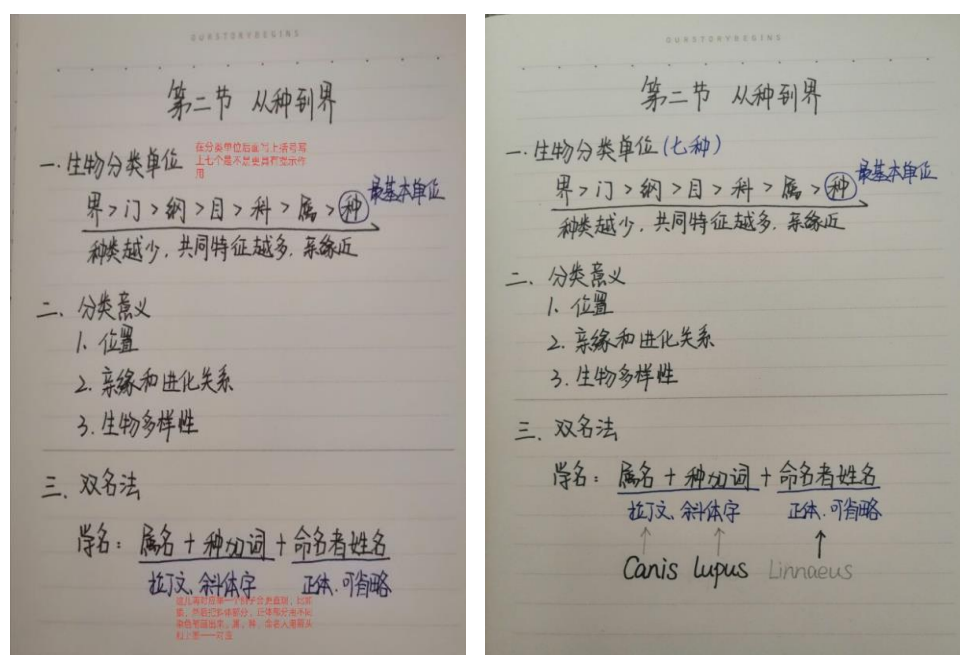 OURSTORYBEGINS
第二节 从种到界
一.生物分类单位
在分类单位后面写上括号写
上七个是不是更具有提示作
用
界>门>纲>目>科>属>种
最基本单位
种类越少.共同特征越多.亲缘近
二、分类意义
1. 位置
2. 亲缘和进化关系
3. 生物多样性
三、双名法
学名：属名+种加词+命名者姓名
拉丁文、斜体字 正体.可省略
OURSTORYBEGINS
第二节 从种到界
一.生物分类单位(七种)
界>门>纲>目>科>属>种
最基本单位
种类越少.共同特征越多.亲缘近
二、分类意义
1. 位置
2. 亲缘和进化关系
3. 生物多样性
三、双名法
学名：属名+种加词+命名者姓名
拉丁文、斜体字 正体.可省略
Canis Lupus Linnaeus